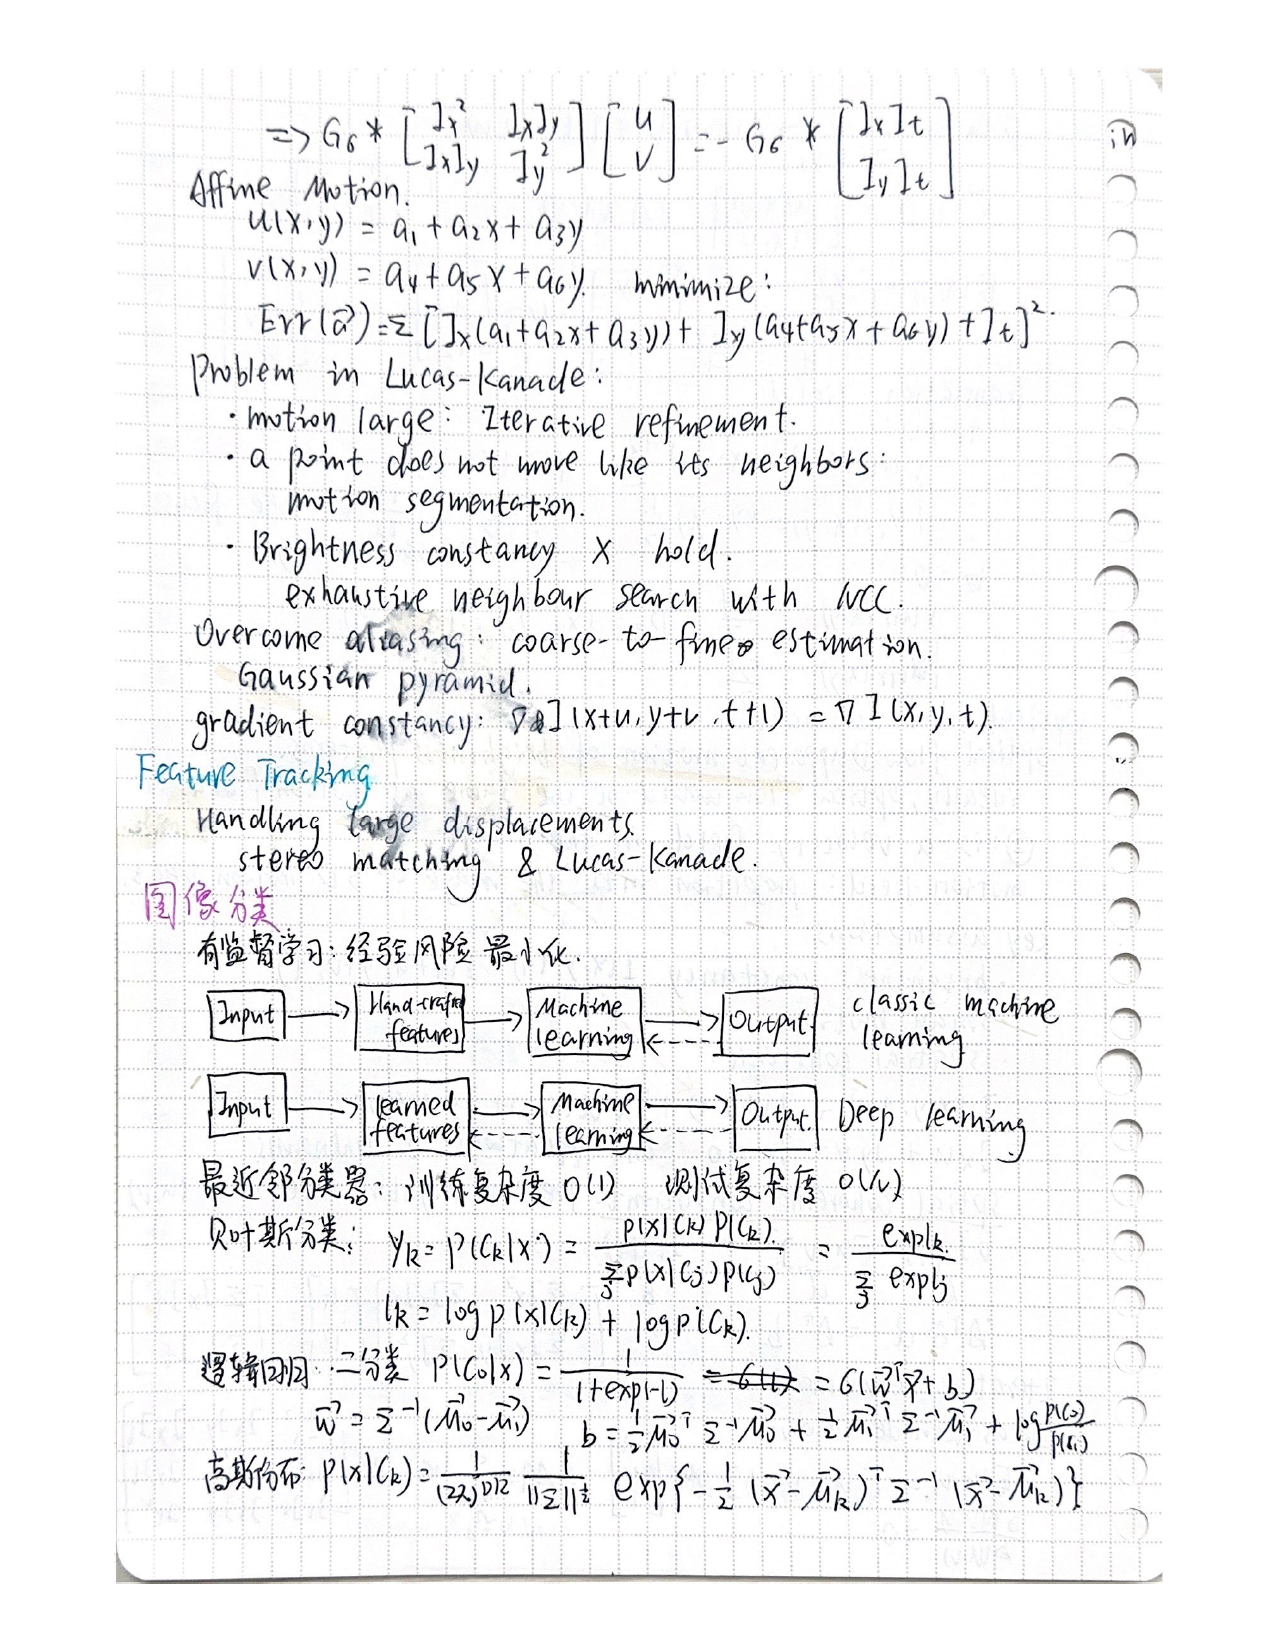 => Gσ * [Ix² IxIy; IxIy Iy²] [u; v] = - Gσ * [IxIt; IyIt]
Affine Motion.
u(x,y) = a₁ + a₂x + a₃y
v(x,y) = a₄ + a₅x + a₆y. minimize:
Err(a⃗) = Σ [Ix(a₁+a₂x+a₃y) + Iy(a₄+a₅x+a₆y) + It]².
Problem in Lucas-Kanade:
· motion large: Iterative refinement.
· a point does not move like its neighbors:
motion segmentation.
· Brightness constancy X hold.
exhaustive neighbour search with NCC.
Overcome aliasing: coarse-to-fine estimation.
Gaussian pyramid.
gradient constancy: ∇I(x+u, y+v, t+1) = ∇I(x,y,t).
Feature Tracking
Handling large displacements.
stereo matching & Lucas-Kanade.
图像分类
有监督学习: 经验风险最小化.
Input → Hand-crafted features → Machine learning → Output. classic machine learning
Input → learned features → Machine learning → Output. Deep learning
最近邻分类器: 训练复杂度 O(1) 测试复杂度 O(N)
贝叶斯分类: yk = p(Ck|x) = p(x|Ck)P(Ck) / Σj p(x|Cj)p(Cj) = exp lk / Σj exp lj
lk = log p(x|Ck) + log p(Ck).
逻辑回归: 二分类 P(C₀|x) = 1 / (1+exp(-l)) = σ(w⃗ᵀx⃗ + b)
w⃗ = Σ⁻¹(μ⃗₀-μ⃗₁) b = -½μ⃗₀ᵀΣ⁻¹μ⃗₀ + ½μ⃗₁ᵀΣ⁻¹μ⃗₁ + log p(C₀)/p(C₁)
高斯分布: p(x|Ck) = 1/(2π)^(D/2) 1/||Σ||^½ exp{-½ (x⃗-μ⃗k)ᵀ Σ⁻¹ (x⃗-μ⃗k)}
in